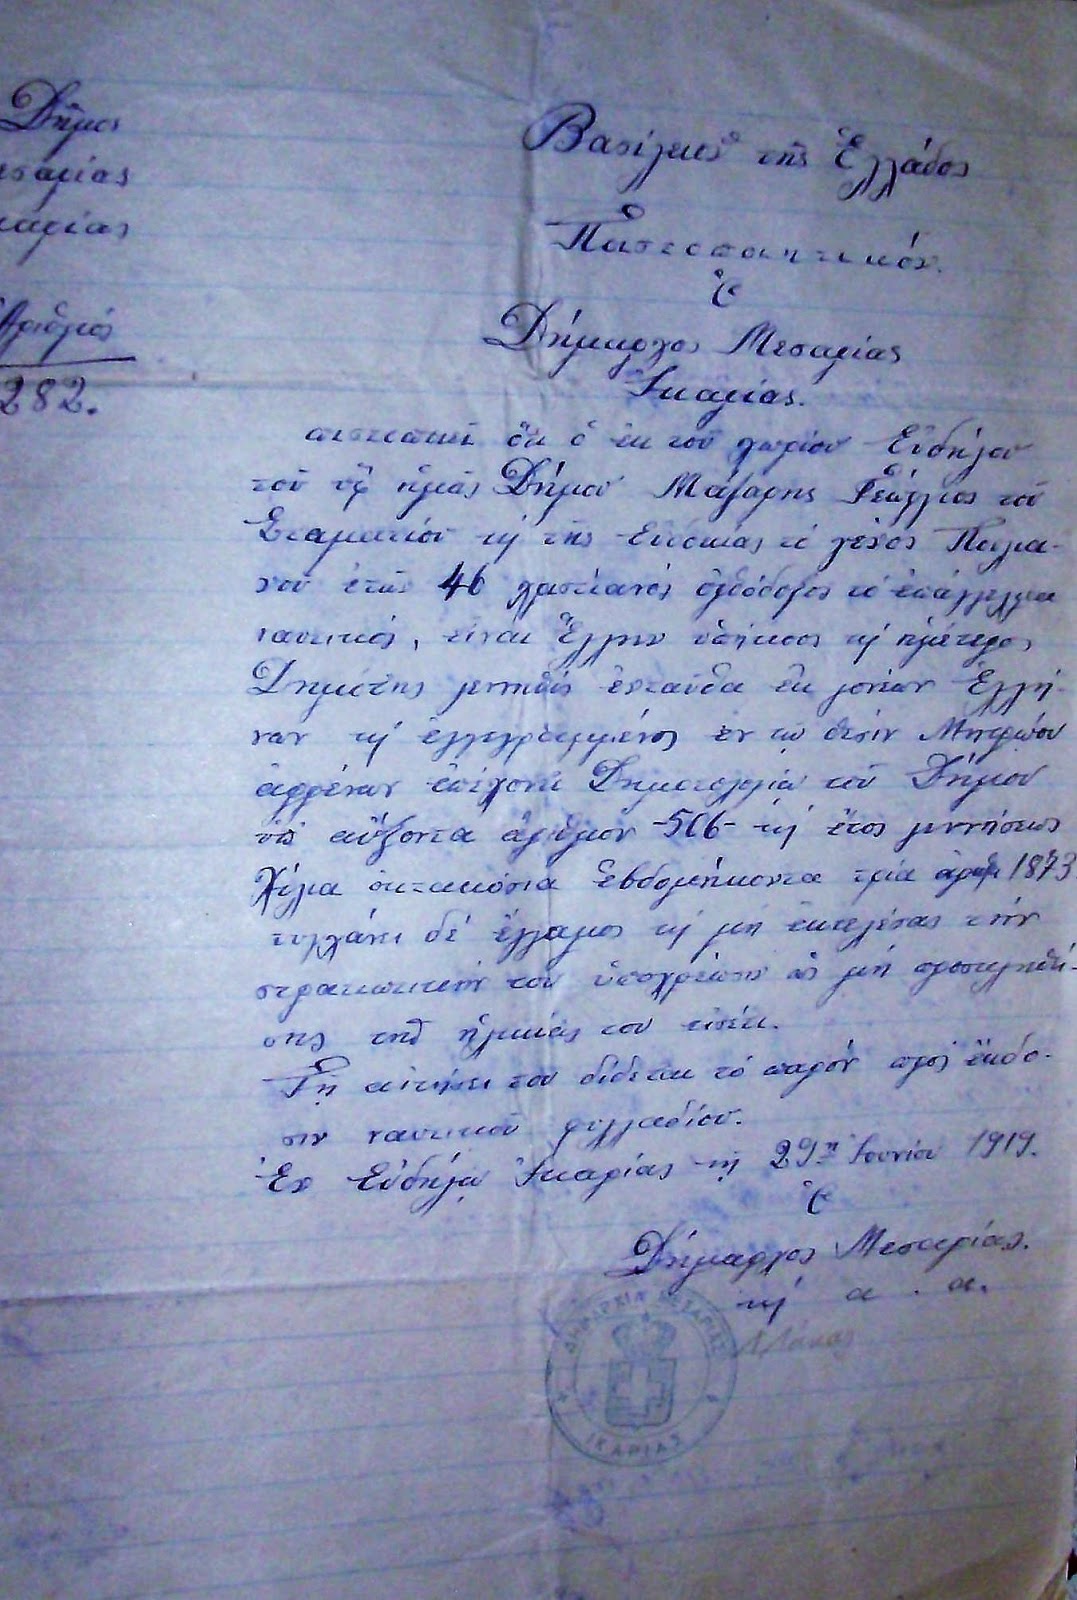 Δῆμος
εσαρίας
καρίας
Ἀριθμός
282.
Βασίλειον τῆς Ἑλλάδος
Πιστοποιητικόν.
Ὁ
Δήμαρχος Μεσαρίας
Ἰκαρίας.
πιστοποιεῖ ὅτι ὁ ἐκ τοῦ χωρίου Εὐδήλου
τοῦ ὑφ' ἡμᾶς Δήμου Γεώργιος τοῦ
Σταματίου καὶ τῆς Εὐδοκίας τὸ γένος
νοῦ ἐτῶν 46 χριστιανός ὀρθόδοξος τὸ ἐπάγγελμα
ναυτικός, εἶναι Ἕλλην ὑπήκοος καὶ ἡμέτερος
Δημότης γεννηθείς ἐνταῦθα ἐκ γονέων Ἑλλή-
νων καὶ ἐγγεγραμμένος ἐν τῷ Μητρώου
ἀρρένων Δημοτολογίῳ τοῦ Δήμου
ὑπ' αὔξοντα ἀριθμόν -506- καὶ ἔτος γεννήσεως
Χίλια ὀκτακόσια ἑβδομήκοντα τρία ἀριθ 1873
τυγχάνει δέ ἔγγαμος καὶ μή ἐκτελέσας τήν
στρατιωτικήν του ὑποχρέωσιν ὡς μή προσκληθεί-
σης τῆς ἡλικίας του εἰσέτι.
Τῇ αἰτήσει του δίδεται τό παρόν πρός ἔκδο-
σιν ναυτικοῦ φυλλαδίου.
Ἐν Εὐδήλῳ Ἰκαρίας τῇ 29ῃ Ἰουνίου 1919.
Ὁ
Δήμαρχος Μεσαρίας.
καὶ α. α.
ΔΗΜΑΡΧΙΑ ΜΕΣΑΡΙΑΣ
ΙΚΑΡΙΑΣ